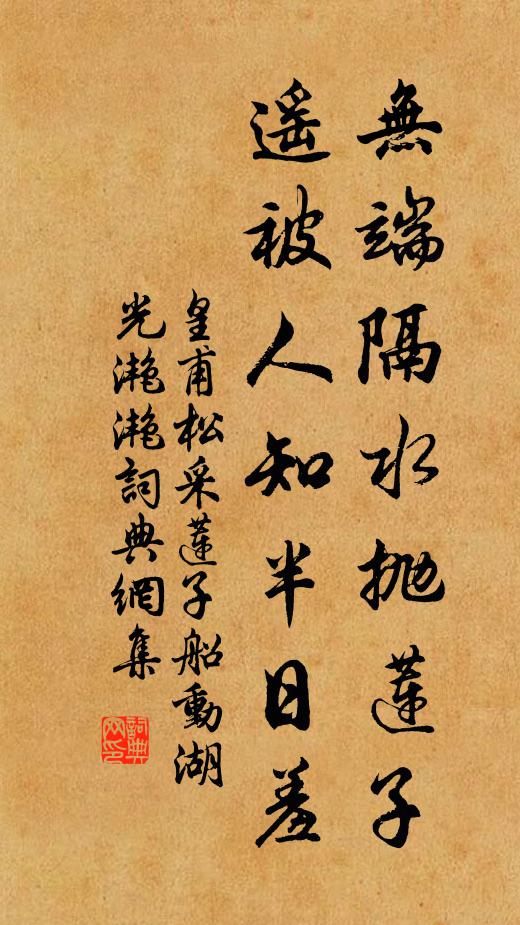 無端隔水抛蓮子
遥被人知半日羞
皇甫松采蓮子船動湖
光灧灧詞典網集
詞典
网印